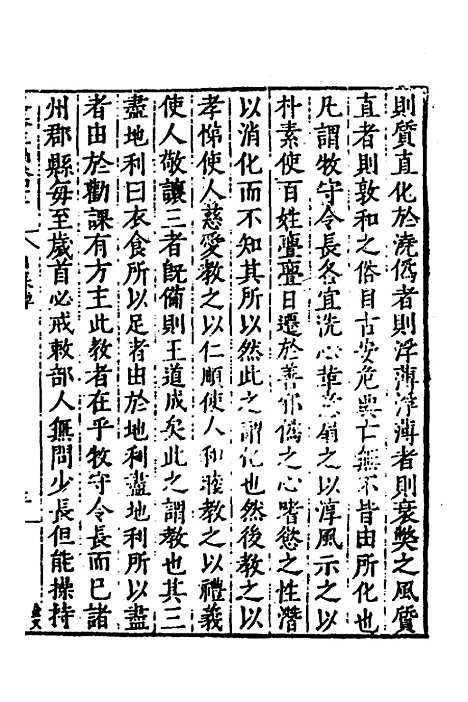 則質直化於澆僞者則浮薄浮薄者則衰獘之風質
直者則敦和之俗自古安危興亡無不皆由所化也
凡謂牧守令長各宜洗心革 之以淳風示之以
朴素使百姓亹亹日遷於善邪僞之心嗜慾之性潛
以消化而不知其所以然此之謂化也然後教之以
孝悌使人慈愛教之以仁順使人和睦教之以禮義
使人敬讓三者既備則王道成矣此之謂教也其三
盡地利曰衣食所以足者由於地利盡地利所以盡
者由於勸課有方主此教者在乎牧守令長而已諸
州郡縣每至歲首必戒敕部人無問少長但能操持